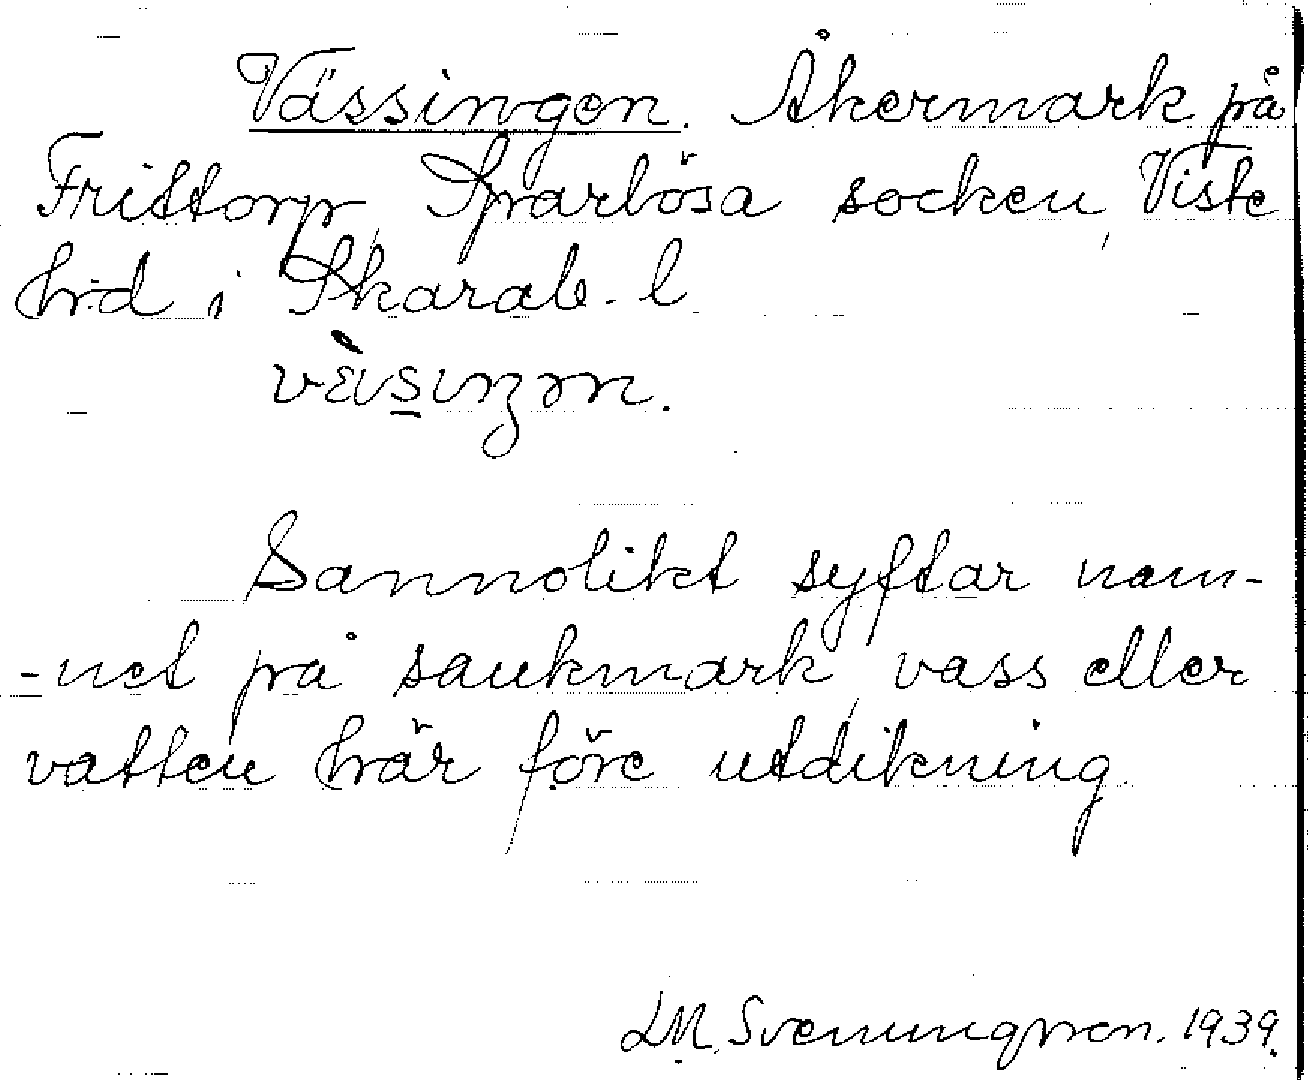 Vässingen. Åkermark på
Frittorp, Sparlösa socken, Viste
hrd i Skarab. l.
Sannolikt syftar nam-
-net på sankmark, vass eller
vatten här före utdikning.
LM. Svenungsson. 1939.